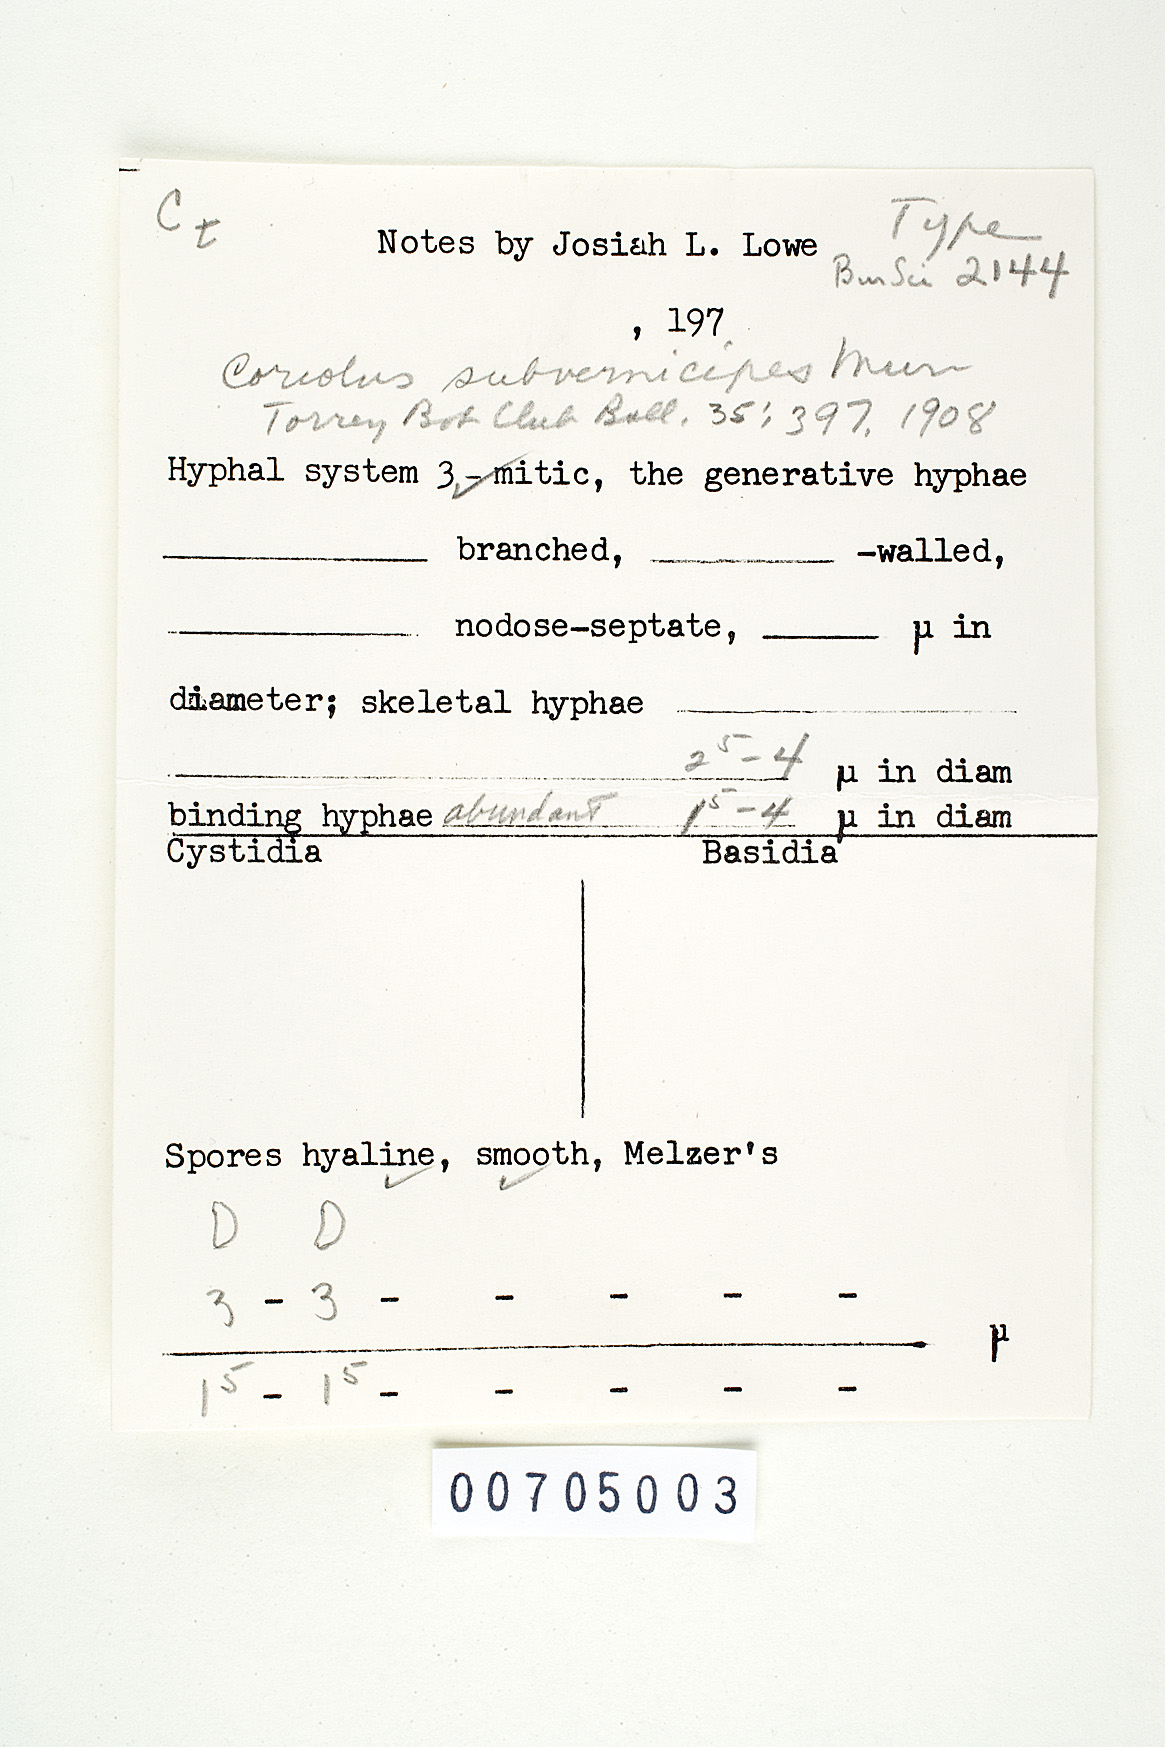 Ct
Type
Notes by Josiah L. Lowe
Bur Sci 2144
, 197
Coriolus subvernicipes Murr
Torrey Bot Club Bull. 35: 397, 1908
Hyphal system 3 -mitic, the generative hyphae
branched, -walled,
nodose-septate, µ in
diameter; skeletal hyphae
2⁵-4 µ in diam
binding hyphae abundant 1⁵-4 µ in diam
Cystidia Basidia
Spores hyaline, smooth, Melzer's
D D
3 - 3 - - - - -
µ
1⁵ - 1⁵ - - - - -
00705003